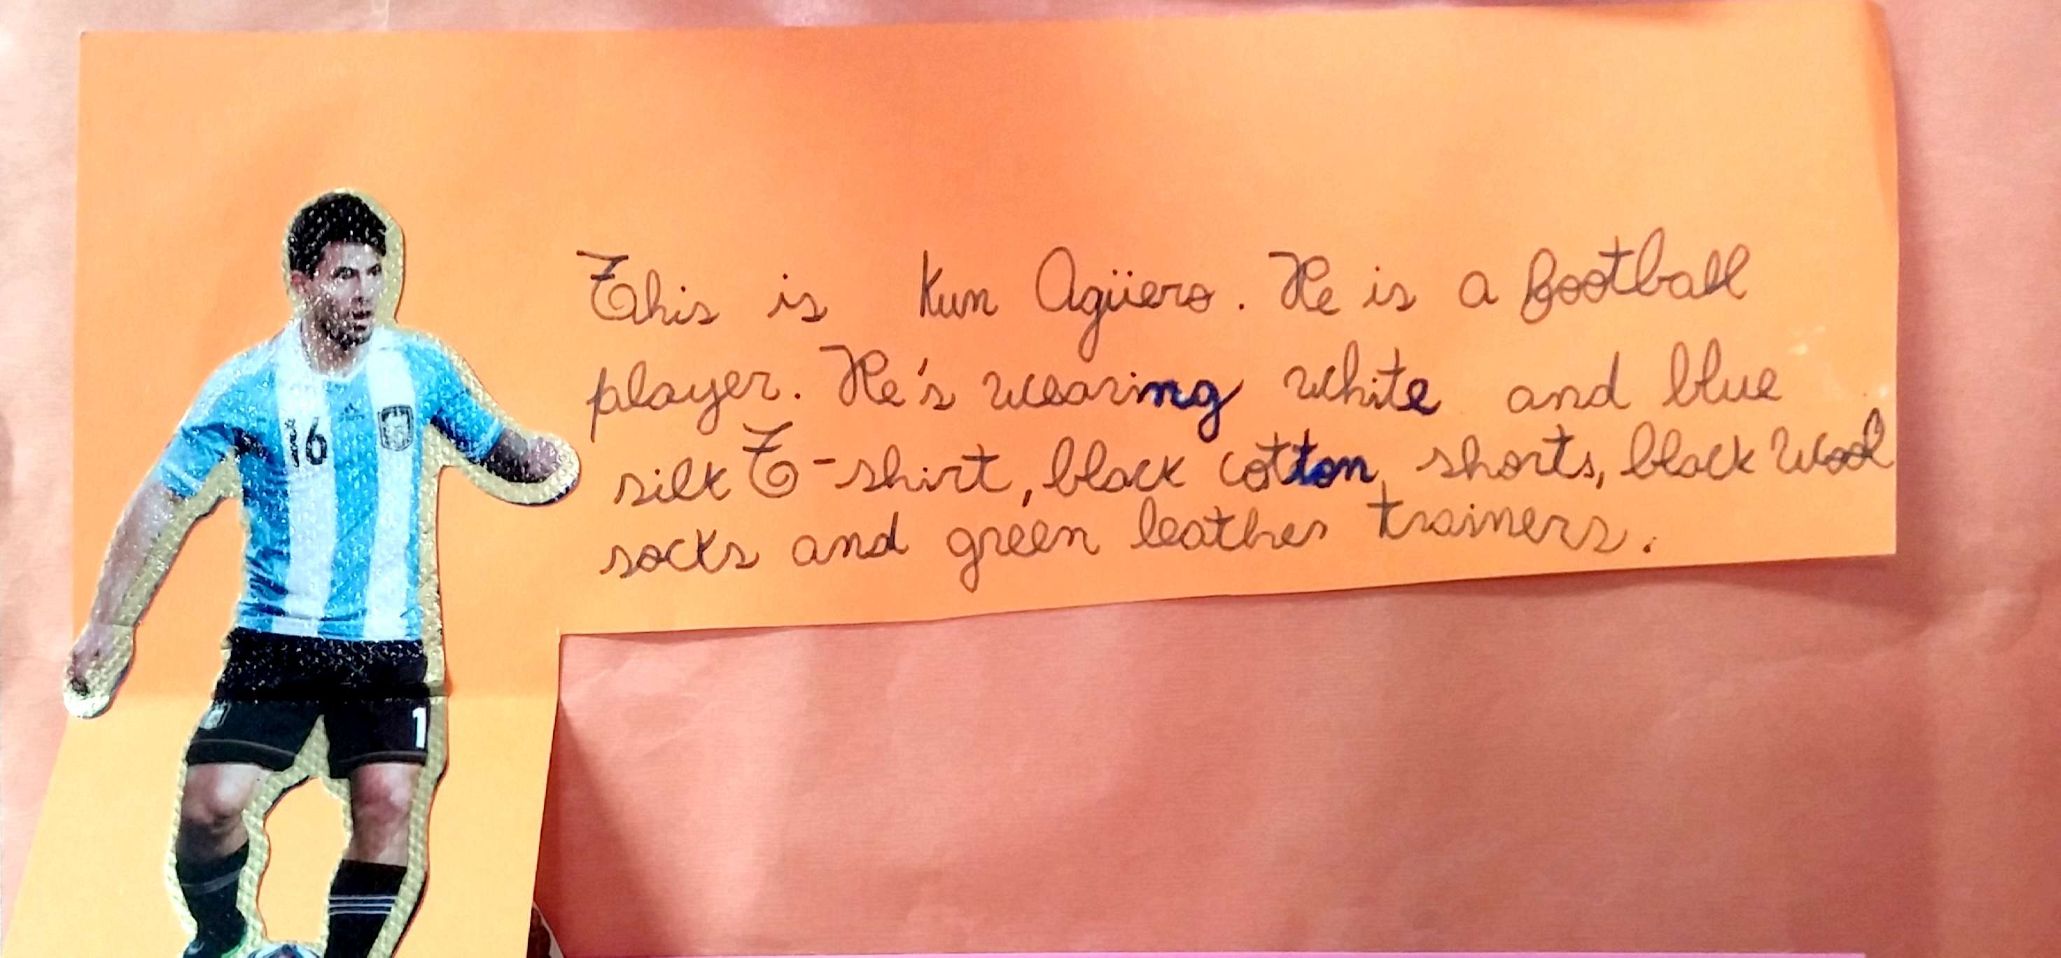 This is Kun Agüero. He is a football
player. He's wearing white and blue
silk T-shirt, black cotton shorts, black wool
socks and green leather trainers.
16
1